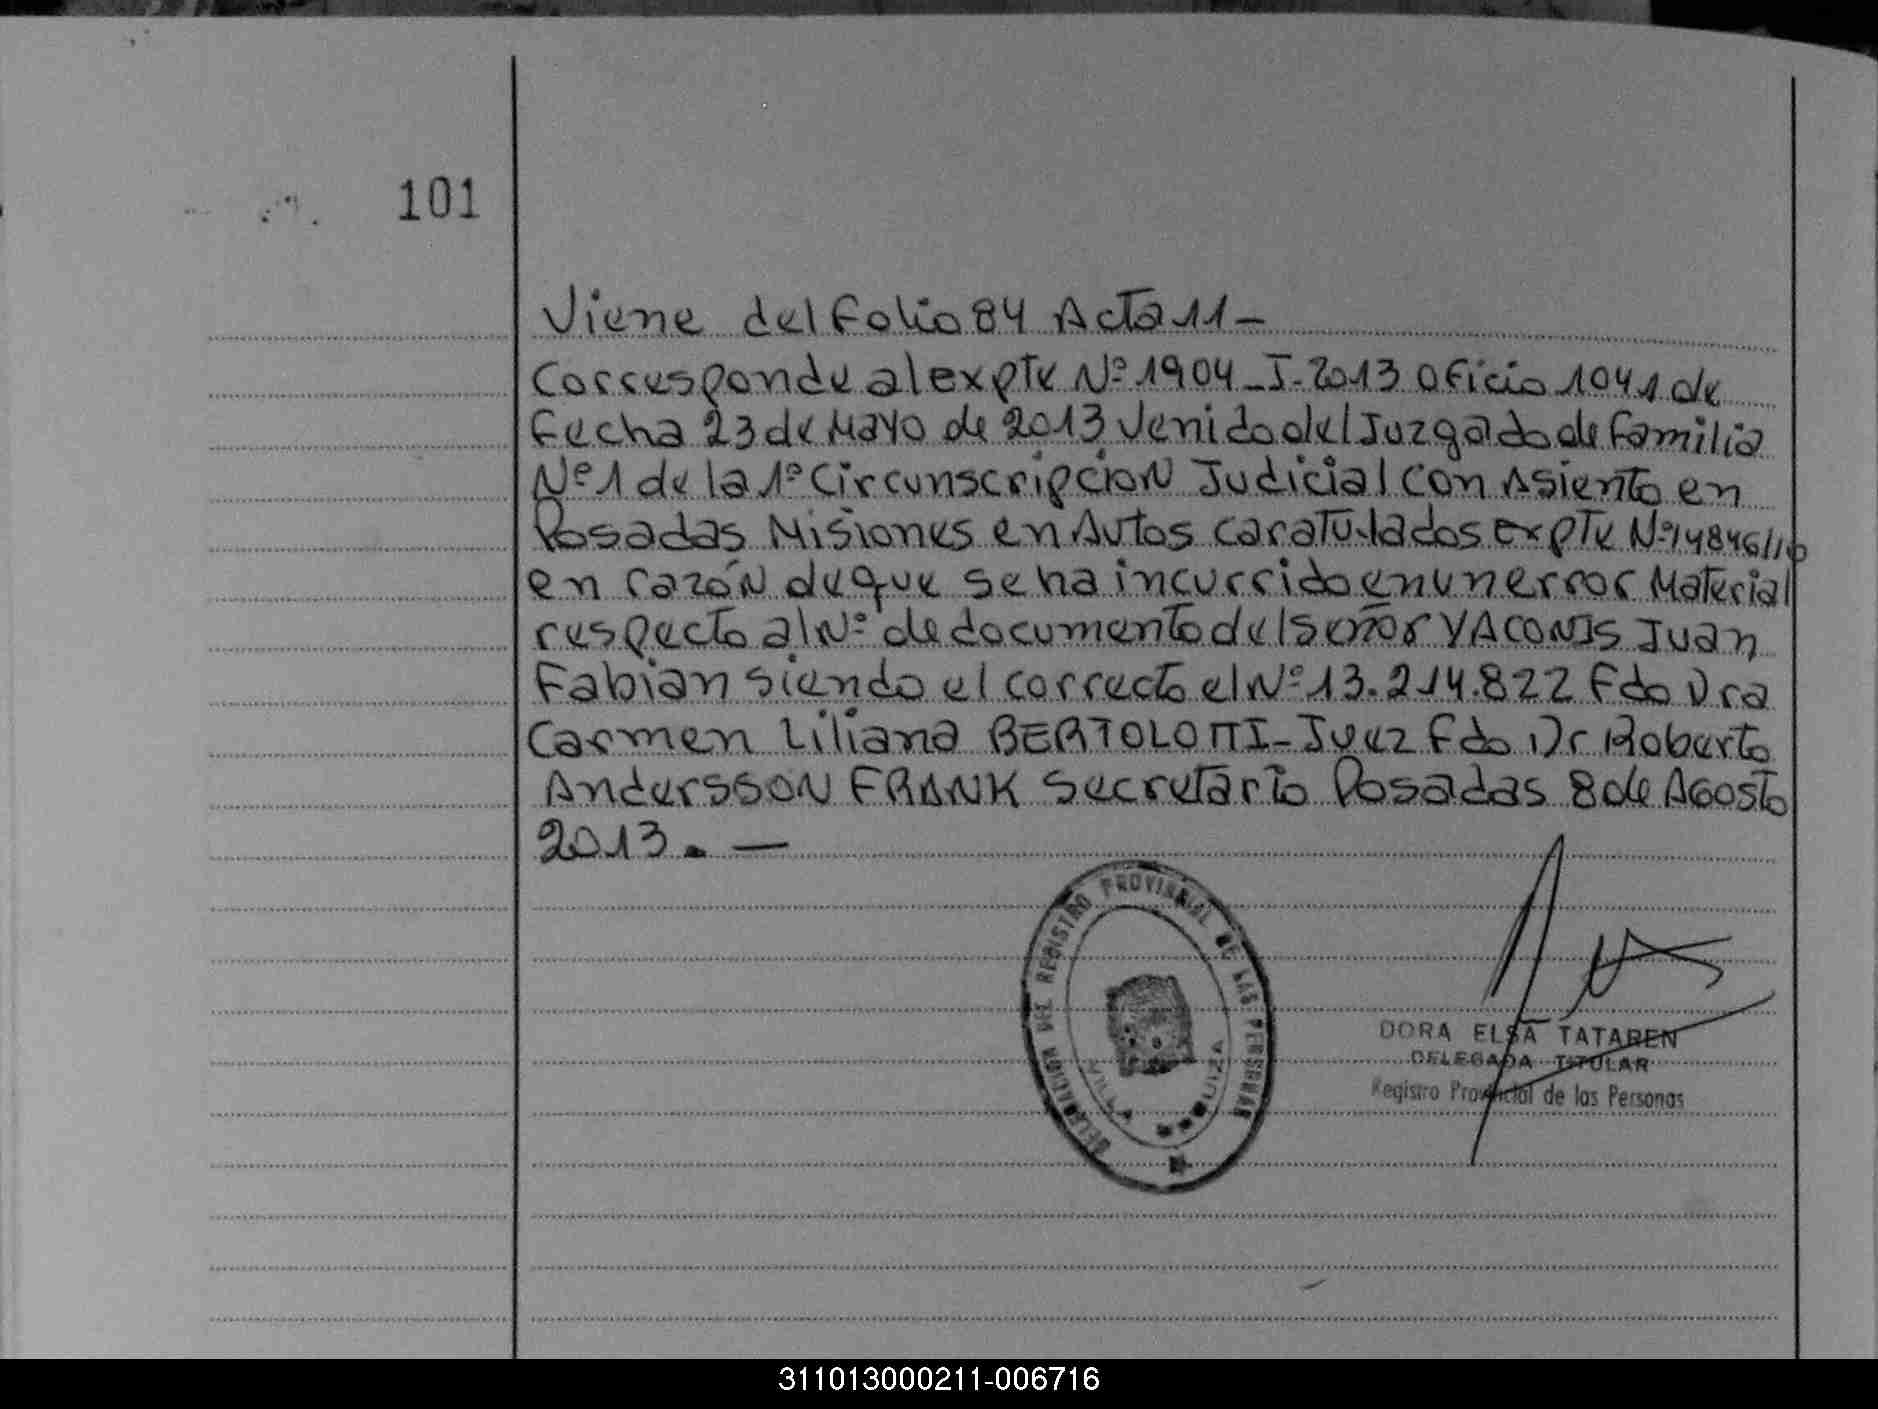 101
Viene del Folio 84 Acta 11 -
Corresponde al expte Nº 1904-I-2013 oficio 1041 de
Fecha 23 de Mayo de 2013 Venido del Juzgado de Familia
Nº 1 de la 1º Circunscripcion Judicial con Asiento en
Posadas Misiones en Autos caratulados expte Nº 14846/
en razón de que se ha incurrido en un error Material
respecto al Nº de documento del señor YACONIS Juan
Fabian siendo el correcto el Nº 13.214.822 Fdo Dra
Carmen Liliana BERTOLOTTI - Juez Fdo Dr Roberto
Andersson FRANK Secretario Posadas 8 de Agosto
2013. —
DELEGACION DEL REGISTRO PROVINCIAL DE LAS PERSONAS
VILLA URQUIZA
DORA ELSA TATAREN
DELEGADA TITULAR
Registro Provincial de las Personas
311013000211-006716